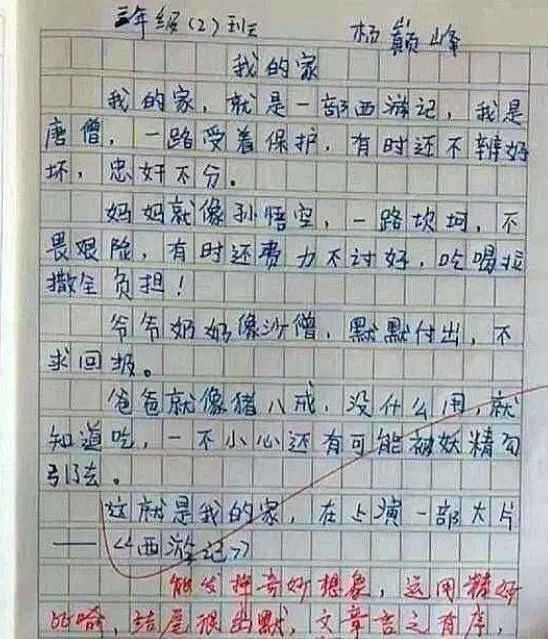 三年级(2)班 杨巅峰
我的家
我的家，就是一部西游记，我是
唐僧，一路受着保护，有时还不辨好
坏，忠奸不分。
妈妈就像孙悟空，一路坎坷，不
畏艰险，有时还费力不讨好，吃喝拉
撒全负担！
爷爷奶奶像沙僧，默默付出，不
求回报。
爸爸就像猪八戒，没什么用，就
知道吃，一不小心还有可能被妖精勾
引去。
这就是我的家，在上演一部大片
——《西游记》
能发挥奇妙想象，运用精妙
比喻，结尾很幽默，文章言之有序，